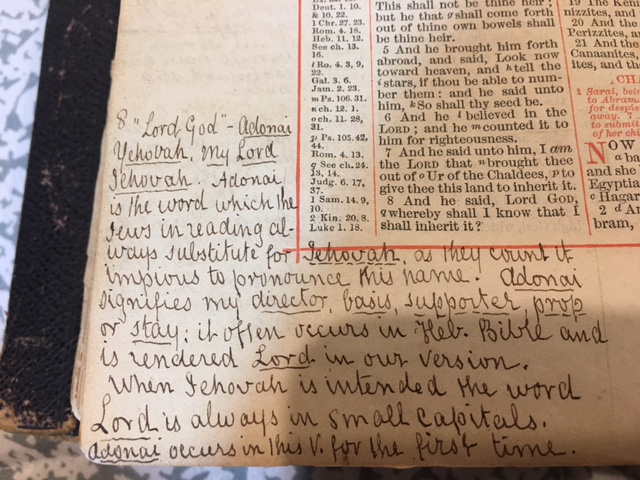 Deut. 1. 10.
& 10. 22.
1 Chr. 27. 23.
Rom. 4. 18.
Heb. 11. 12.
See ch. 13.
16.
l Ro. 4. 3, 9,
22.
Gal. 3. 6.
Jam. 2. 23.
m Ps. 106. 31.
n ch. 12. 1.
o ch. 11. 28,
31.
p Ps. 105. 42,
44.
Rom. 4. 13.
q See ch. 24.
13, 14.
Judg. 6. 17,
37.
1 Sam. 14. 9,
10.
2 Kin. 20. 8.
Luke 1. 18.
This shall not be thine heir;
but he that g shall come forth
out of thine own bowels shall
be thine heir.
5 And he brought him forth
abroad, and said, Look now
toward heaven, and h tell the
i stars, if thou be able to num-
ber them: and he said unto
him, k So shall thy seed be.
6 And he l believed in the
LORD; and he m counted it to
him for righteousness.
7 And he said unto him, I am
the LORD that n brought thee
out of o Ur of the Chaldees, p to
give thee this land to inherit it.
8 And he said, Lord GOD,
q whereby shall I know that I
shall inherit it?
19 The Ken
nizzites, and
20 And the
Perizzites, an
21 And the
Canaanites,
ites, and the
CH
1 Sarai, bein
to Abram
for despis
away. 7
to submit
of her chi
NOW
a b
and she
Egyptia
c Hagar
2 d A
bram,
8 "Lord God" - Adonai
Yehovah, My Lord
Jehovah. Adonai
is the word which the
Jews in reading al-
ways substitute for Jehovah, as they count it
impious to pronounce this name. Adonai
signifies my director, basis, supporter, prop
or stay; it often occurs in Heb. Bible and
is rendered Lord in our version.
When Jehovah is intended the word
Lord is always in small capitals.
Adonai occurs in this V. for the first time.